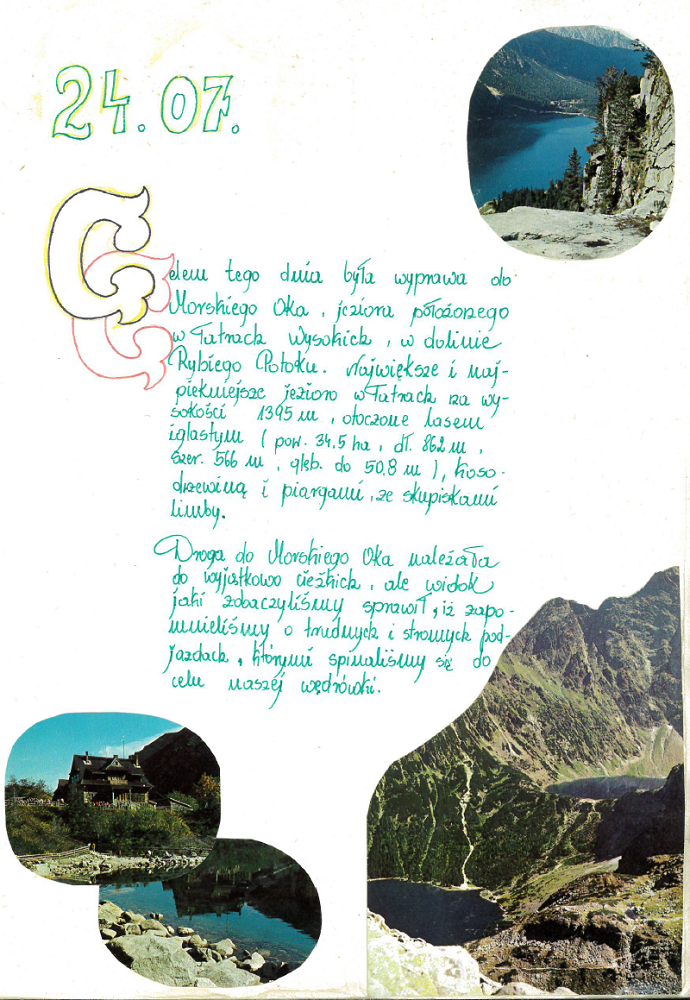 24.07.
Celem tego dnia była wyprawa do
Morskiego Oka, jeziora położonego
w Tatrach Wysokich, w dolinie
Rybiego Potoku. Największe i naj-
piękniejsze jezioro w Tatrach na wy-
sokości 1395 m, otoczone lasem
iglastym (pow. 34.5 ha, dł. 862 m,
szer. 566 m, głęb. do 50,8 m), koso-
drzewiną i piargami, ze skupiskami
limby.
Droga do Morskiego Oka należała
do wyjątkowo cieżkich, ale widok
jaki zobaczyliśmy sprawił, iż zapo-
mnieliśmy o trudnych i stromych pod-
jazdach, którymi spinaliśmy się do
celu naszej wędrówki.